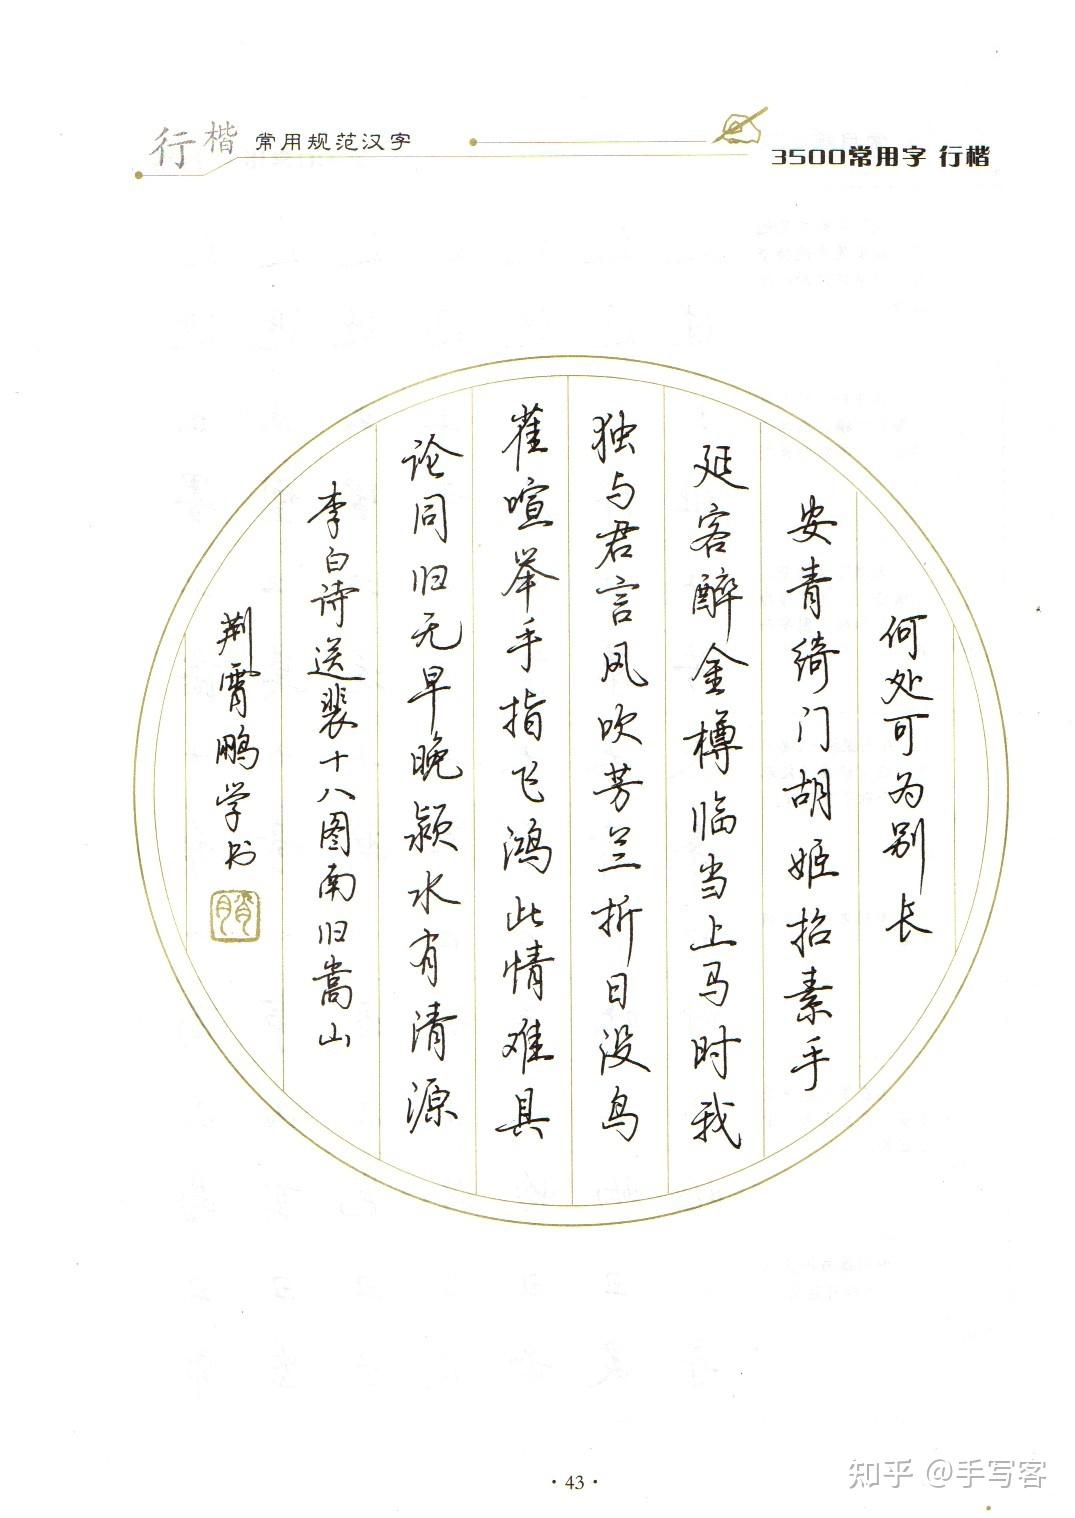 行楷 常用规范汉字
3500常用字 行楷
何处可为别长
安青绮门胡姬招素手
延客醉金樽临当上马时我
独与君言风吹芳兰折日没鸟
雀喧举手指飞鸿此情难具
论同归无早晚颍水有清源
李白诗送裴十八图南归嵩山
荆霄鹏学书
·43·
知乎 @手写客